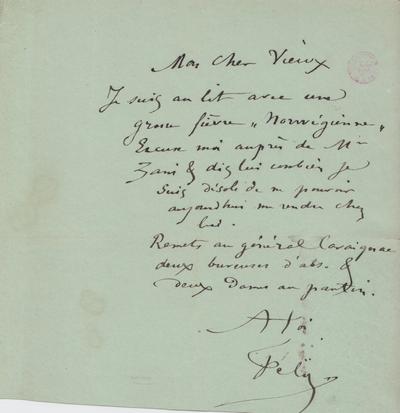 Mon cher Vieux
Je suis au lit avec une
grosse fièvre „Norwégienne„
Excuse moi auprès de Mr
Zani & dis lui combien je
suis désolé de ne pouvoir
aujourdhui me rendre chez
lui.
Remets au général Cavaignac
deux buveuses d'abs. &
deux Dames au pantin.
A toi
Fély